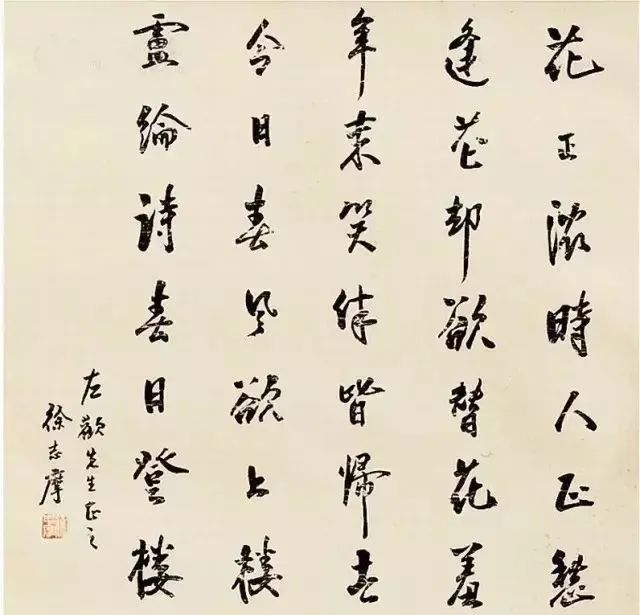 花正濃時人正愁
逢花却欲替花羞
年来笑伴皆歸去
今日春風欲上樓
盧綸詩春日登樓
左先生正之
徐志摩